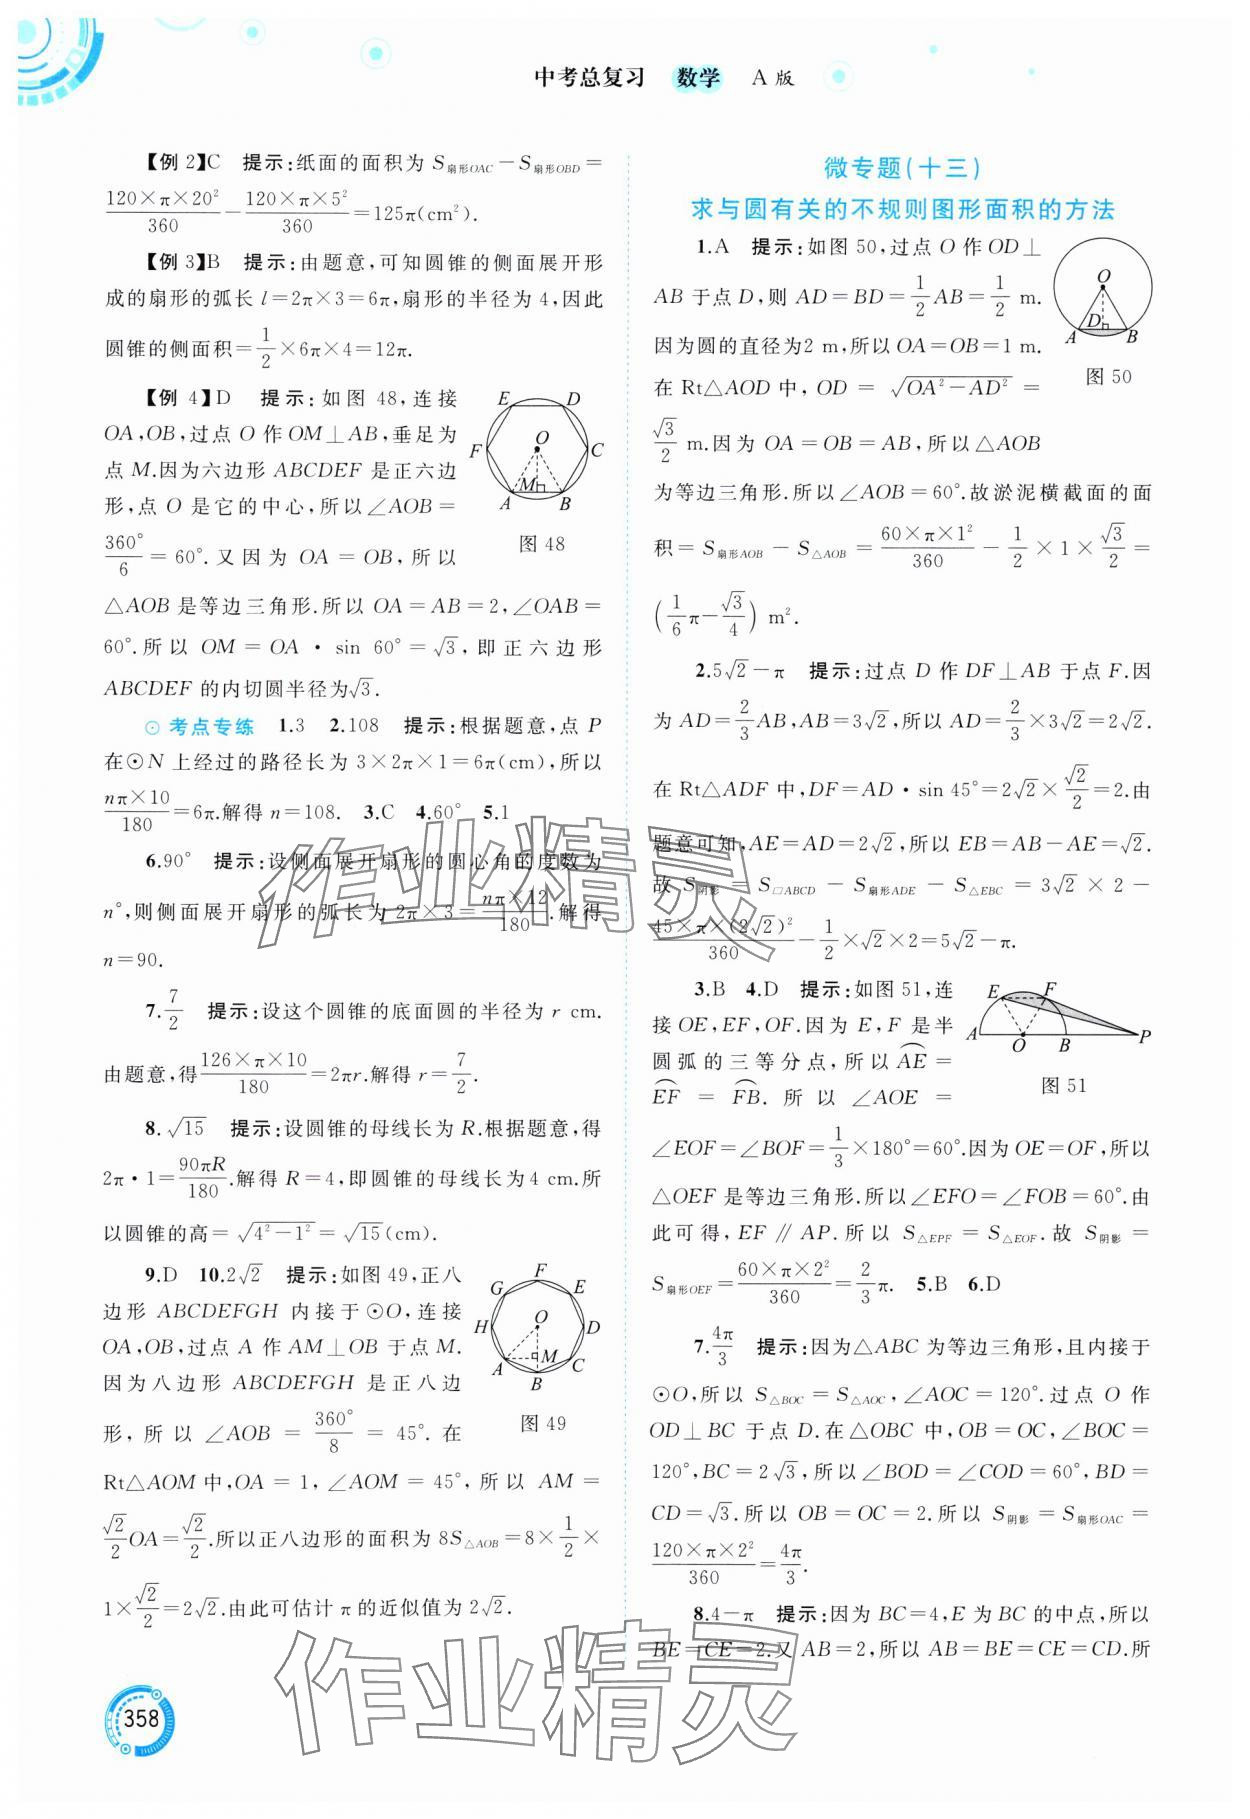 中考总复习 数学 A版
【例 2】C 提示:纸面的面积为 S扇形OAC－S扇形OBD＝
120×π×20²/360－120×π×5²/360＝125π(cm²).
【例 3】B 提示:由题意,可知圆锥的侧面展开形
成的扇形的弧长 l＝2π×3＝6π,扇形的半径为 4,因此
圆锥的侧面积＝1/2×6π×4＝12π.
【例 4】D 提示:如图 48,连接
OA,OB,过点 O 作 OM⊥AB,垂足为
点 M.因为六边形 ABCDEF 是正六边
形,点 O 是它的中心,所以∠AOB＝
360°/6＝60°.又因为 OA＝OB,所以
△AOB 是等边三角形.所以 OA＝AB＝2,∠OAB＝
60°.所以 OM＝OA·sin 60°＝√3,即正六边形
ABCDEF 的内切圆半径为√3.
E D
F O C
M
A B
图 48
考点专练 1.3 2.108 提示:根据题意,点 P
在⊙N 上经过的路径长为 3×2π×1＝6π(cm),所以
nπ×10/180＝6π.解得 n＝108. 3.C 4.60° 5.1
6.90° 提示:设侧面展开扇形的圆心角的度数为
n°,则侧面展开扇形的弧长为 2π×3＝nπ×12/180.解得
n＝90.
7.7/2 提示:设这个圆锥的底面圆的半径为 r cm.
由题意,得126×π×10/180＝2πr.解得 r＝7/2.
8.√15 提示:设圆锥的母线长为 R.根据题意,得
2π·1＝90πR/180.解得 R＝4,即圆锥的母线长为4 cm.所
以圆锥的高＝√(4²－1²)＝√15(cm).
9.D 10.2√2 提示:如图 49,正八
边形 ABCDEFGH 内接于⊙O,连接
OA,OB,过点 A 作 AM⊥OB 于点 M.
因为八边形 ABCDEFGH 是正八边
形,所以∠AOB＝360°/8＝45°.在
Rt△AOM 中,OA＝1,∠AOM＝45°,所以 AM＝
√2/2OA＝√2/2.所以正八边形的面积为 8S△AOB＝8×1/2×
1×√2/2＝2√2.由此可估计 π 的近似值为 2√2.
F
G E
H O D
M
A C
B
图 49
358
微专题(十三)
求与圆有关的不规则图形面积的方法
1.A 提示:如图 50,过点 O 作 OD⊥
AB 于点 D,则 AD＝BD＝1/2AB＝1/2 m.
因为圆的直径为2 m,所以 OA＝OB＝1 m.
在 Rt△AOD 中,OD＝√(OA²－AD²)＝
√3/2 m.因为 OA＝OB＝AB,所以△AOB
为等边三角形.所以∠AOB＝60°.故淤泥横截面的面
积＝S扇形AOB－S△AOB＝60×π×1²/360－1/2×1×√3/2＝
(1/6π－√3/4) m².
O
D
A B
图 50
2.5√2－π 提示:过点 D 作 DF⊥AB 于点 F.因
为 AD＝2/3AB,AB＝3√2,所以 AD＝2/3×3√2＝2√2.
在 Rt△ADF 中,DF＝AD·sin 45°＝2√2×√2/2＝2.由
题意可知,AE＝AD＝2√2,所以 EB＝AB－AE＝√2.
故 S阴影＝S□ABCD－S扇形ADE－S△EBC＝3√2×2－
45×π×(2√2)²/360－1/2×√2×2＝5√2－π.
3.B 4.D 提示:如图 51,连
接OE,EF,OF.因为 E,F 是半
圆弧的三等分点,所以⌒AE＝
⌒EF＝⌒FB.所以∠AOE＝
∠EOF＝∠BOF＝1/3×180°＝60°.因为 OE＝OF,所以
△OEF 是等边三角形.所以∠EFO＝∠FOB＝60°.由
此可得,EF∥AP.所以 S△EPF＝S△EOF.故 S阴影＝
S扇形OEF＝60×π×2²/360＝2/3π. 5.B 6.D
E F
A O B P
图 51
7.4π/3 提示:因为△ABC 为等边三角形,且内接于
⊙O,所以 S△BOC＝S△AOC,∠AOC＝120°.过点 O 作
OD⊥BC 于点 D.在△OBC 中,OB＝OC,∠BOC＝
120°,BC＝2√3,所以∠BOD＝∠COD＝60°,BD＝
CD＝√3.所以 OB＝OC＝2.所以 S阴影＝S扇形OAC＝
120×π×2²/360＝4π/3.
8.4－π 提示:因为 BC＝4,E 为 BC 的中点,所以
BE＝CE＝2.又 AB＝2,所以 AB＝BE＝CE＝CD.所
作业精灵
作业精灵